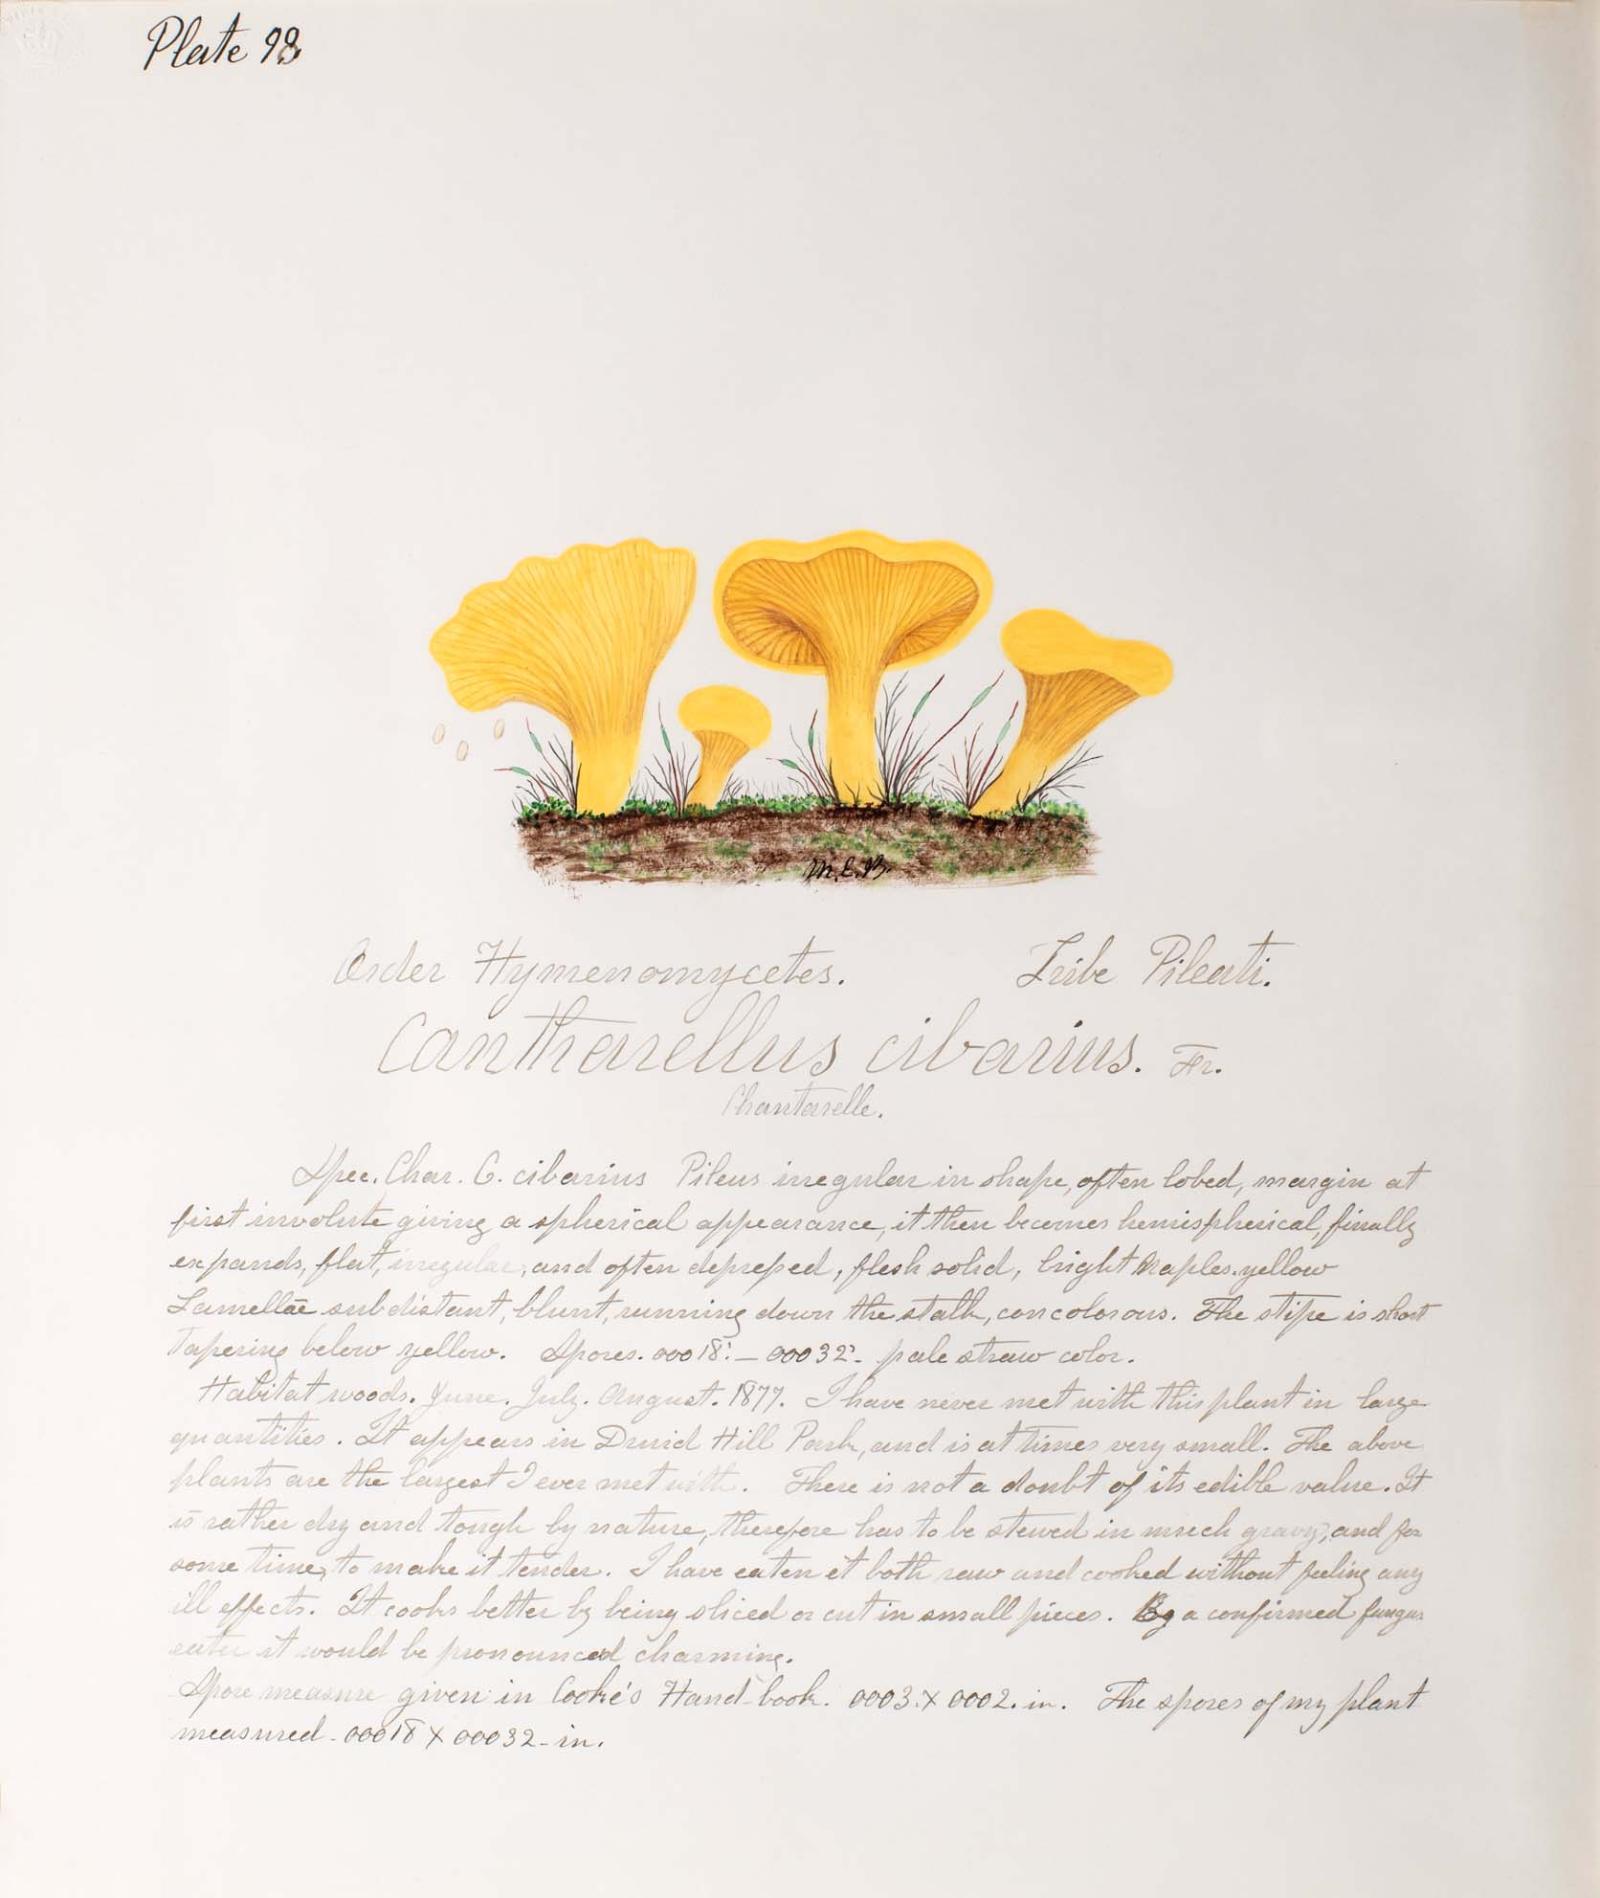 Plate 98
M.E.B.
Order Hymenomycetes. Tribe Pileati.
Cantharellus cibarius. Fr.
Chantarelle.
Spec. Char. C. cibarius Pileus irregular in shape, often lobed, margin at
first involute giving a spherical appearance, it then becomes hemispherical, finally
expands, flat, irregular, and often depressed, flesh solid, bright Naples yellow
Lamellae subdistant, blunt, running down the stalk, concolorous. The stipe is short
tapering below yellow. Spores. 00018"– 00032"- pale straw color.
Habitat woods. June. July. August. 1877. I have never met with this plant in large
quantities. It appears in Druid Hill Park, and is at times very small. The above
plants are the largest I ever met with. There is not a doubt of its edible value. It
is rather dry and tough by nature, therefore has to be stewed in much gravy, and for
some time, to make it tender. I have eaten it both raw and cooked without feeling any
ill effects. It cooks better by being sliced or cut in small pieces. By a confirmed fungus
eater it would be pronounced charming.
Spore measure given in Cooke's Hand-book. 0003. X 0002. in. The spores of my plant
measured - 00018 X 00032 - in.